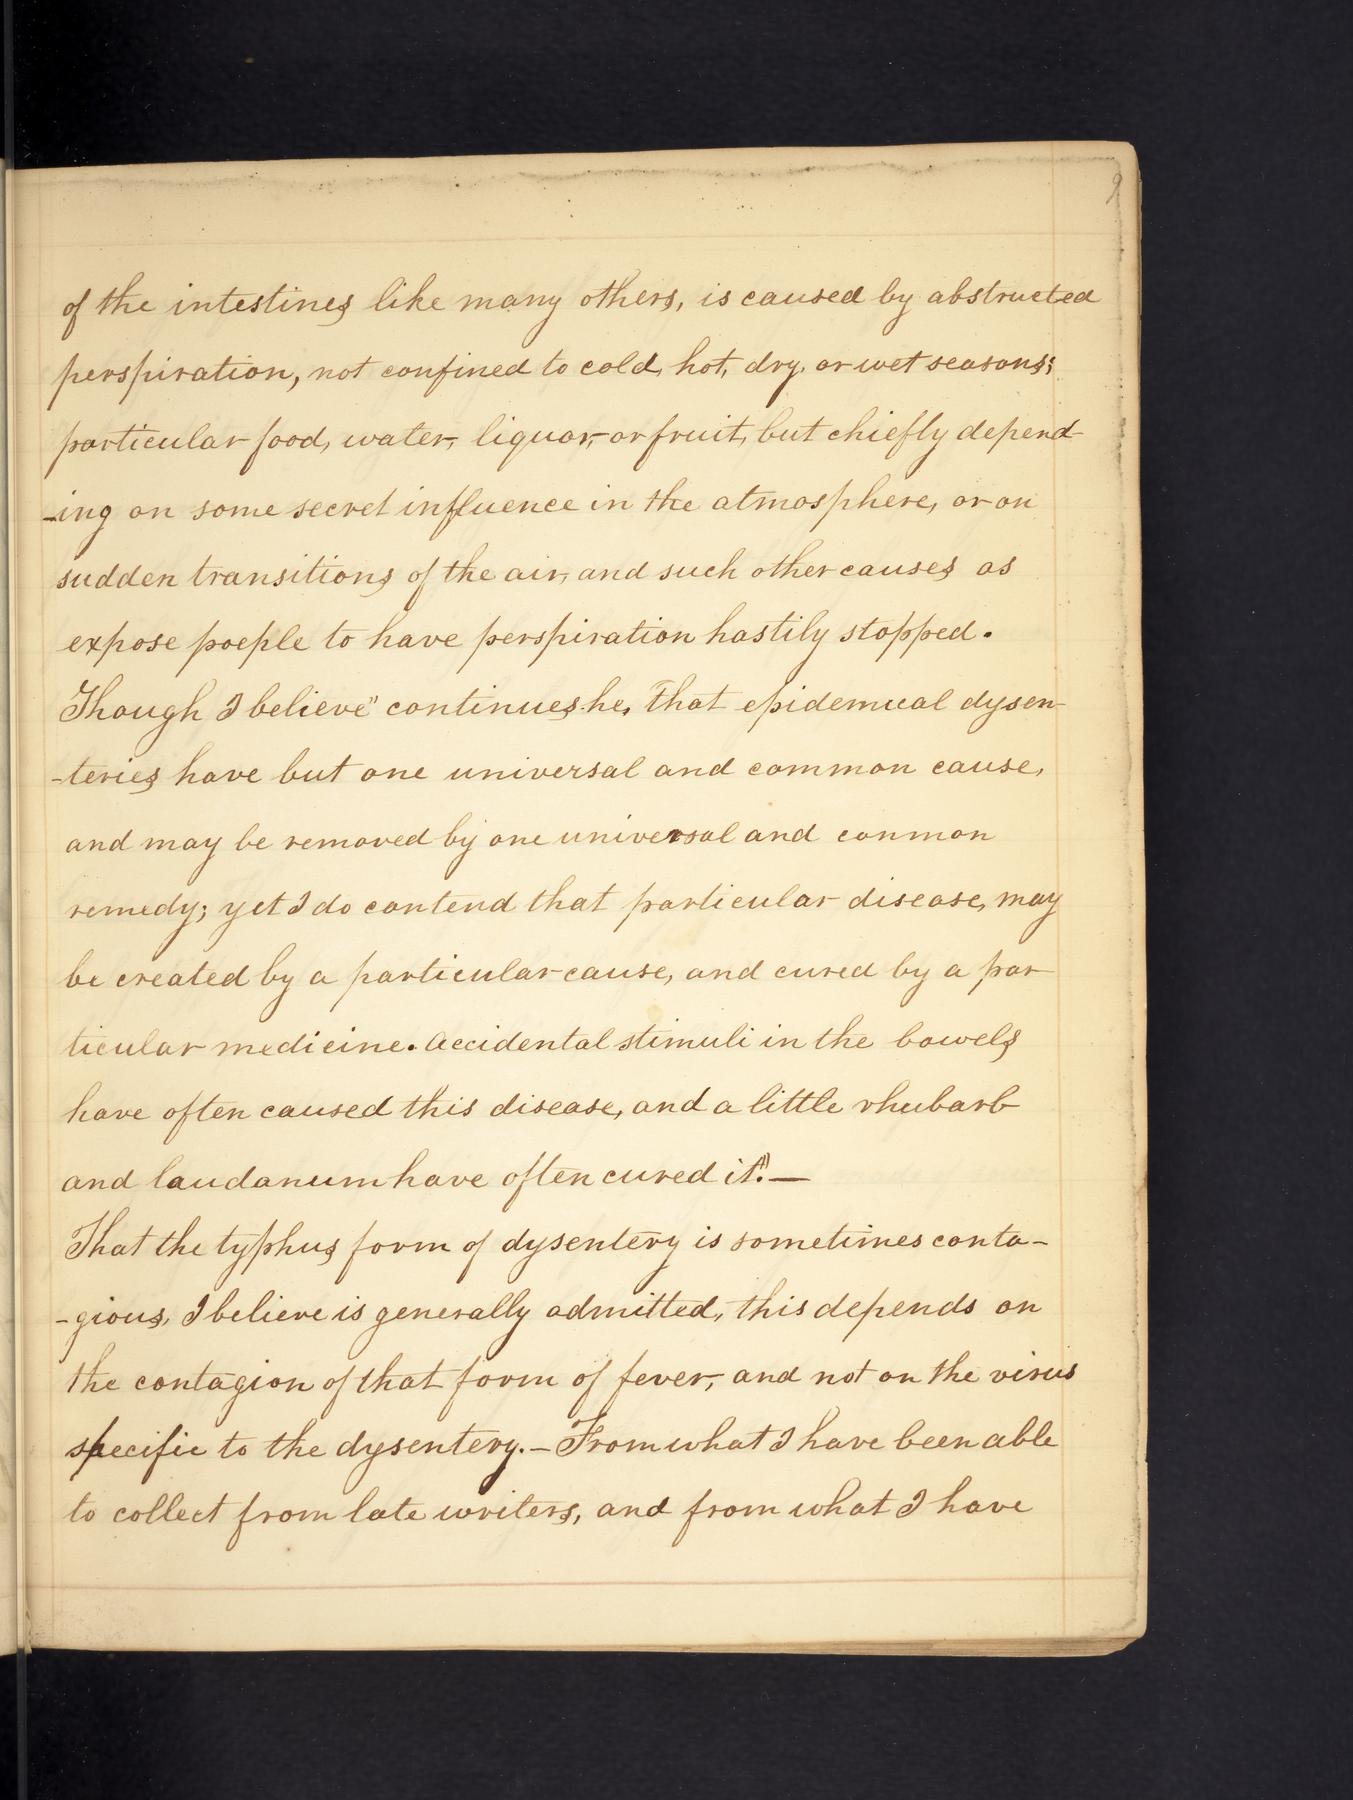 9
of the intestines like many others, is caused by abstructed
perspiration, not confined to cold, hot, dry, or wet seasons;
particular food, water, liquor, or fruit, but chiefly depend-
-ing on some secret influence in the atmosphere, or on
sudden transitions of the air, and such other causes as
expose poeple to have perspiration hastily stopped.
Though I believe" continues he, that epidemical dysen-
-teries have but one universal and common cause,
and may be removed by one universal and conmon
remedy; yet I do contend that particular disease, may
be created by a particular cause, and cured by a par
ticular medicine. Accidental stimuli in the bowels
have often caused this disease, and a little rhubarb
and laudanum have often cured it". —
That the typhus form of dysentery is sometimes conta-
-gious, I believe is generally admitted, this depends on
the contagion of that form of fever, and not on the virus
specific to the dysentery. — From what I have been able
to collect from late writers, and from what I have